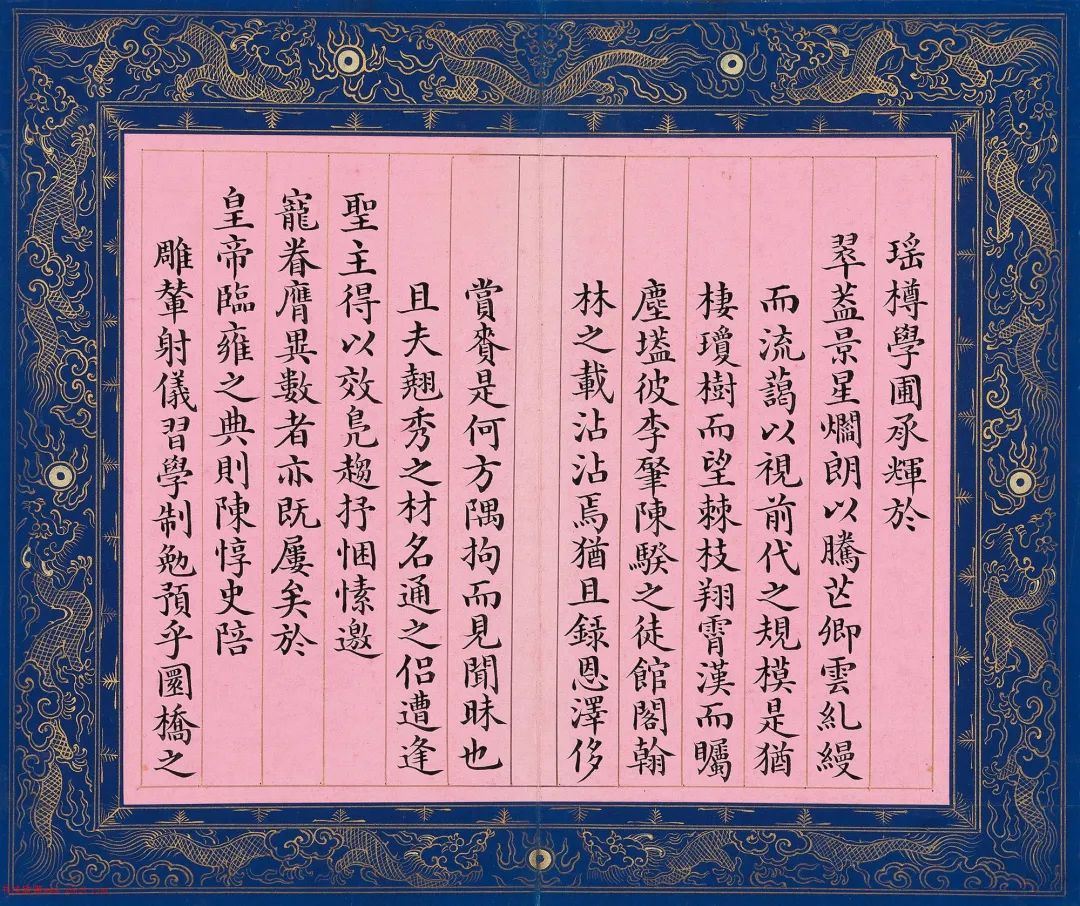 瑶樽學圃承輝於
翠葢景星爛朗以騰芒卿雲糺縵
而流藹以視前代之規模是猶
棲瓊樹而望棘枝翔霄漢而矚
塵壒彼李肇陳騤之徒館閣翰
林之載沾沾焉猶且錄恩澤侈
賞賚是何方隅拘而見聞昧也
且夫翹秀之材名通之侣遭逢
聖主得以效凫趨抒悃愫邀
寵眷膺異數者亦既屢矣於
皇帝臨雍之典則陳惇史陪
雕輦射儀習學制勉預乎圜橋之